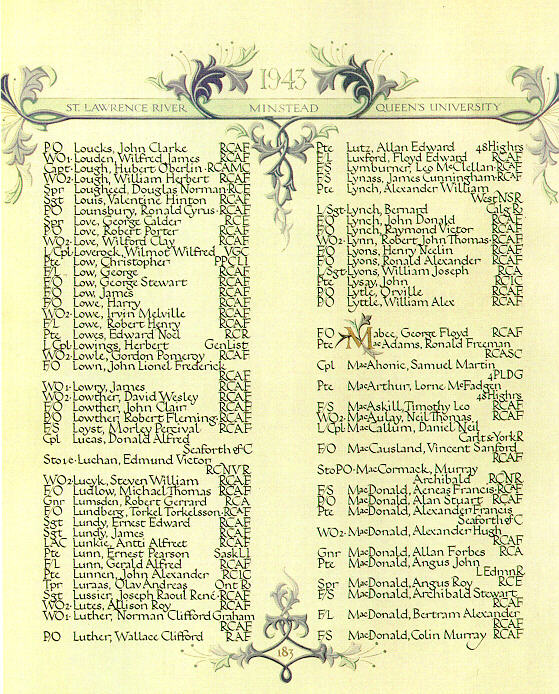 1943
ST. LAWRENCE RIVER MINSTEAD QUEEN'S UNIVERSITY
P/O Loucks, John Clarke RCAF
WO1· Louden, Wilfred James RCAF
Capt· Lough, Hubert Oberlin·RCAMC
WO2·Lough, William Herbert RCAF
Spr Lougheed, Douglas Norman·RCE
Sgt Louis, Valentine Hinton RCAF
P/O Lounsbury, Ronald Cyrus·RCAF
Spr Love, George Calder RCE
P/O Love, Robert Porter RCAF
WO2·Love, Wilford Clay RCAF
L/Cpl·Loverock, Wilmot Wilfred VGC
Pte Low, Christopher PPCLI
F/L Low, George RCAF
F/O Low, George Stewart RCAF
F/O Low, James RCAF
F/O Lowe, Harry RCAF
WO2·Lowe, Irvin Melville RCAF
F/L Lowe, Robert Henry RCAF
Pte Lowes, Edward Noel RCR
L/Cpl·Lowings, Herbert GenList
WO2·Lowle, Gordon Pomeroy RCAF
F/O Lown, John Lionel Frederick
RCAF
WO1·Lowry, James RCAF
WO2·Lowther, David Wesley RCAF
F/O Lowther, John Clair RCAF
P/O Lowther Robert Fleming·RCAF
F/S Loyst, Morley Percival RCAF
Cpl Lucas, Donald Alfred
SeaforthofC
Sto1·c·Luchan, Edmund Victor
RCNVR
WO2·Lucyk, Steven William RCAF
F/O Ludlow, Michael Thomas RCAF
Gnr Lumsden, Robert Gerrard RCA
F/O Lundberg, Torkel Torkelsson·RCAF
Sgt Lundy, Ernest Edward RCAF
Sgt Lundy, James RCAF
LAC Lunkie, Antti Alfred RCAF
Pte Lunn, Ernest Pearson SaskLI
F/L Lunn, Gerald Alfred RCAF
Pte Lunnen, John Alexander RCIC
Tpr Luraas, Olav Andreas Ont R
Sgt Lussier, Joseph Raoul René·RCAF
WO2·Lutes, Allison Roy RCAF
WO1· Luther, Norman Clifford Graham
RCAF
P/O Luther, Wallace Clifford RAF
Pte Lutz, Allan Edward 48Highrs
F/L Luxford, Floyd Edward RCAF
F/S Lymburner, Leo McClellan·RCAF
F/S Lynass, James Cunningham·RCAF
Pte Lynch, Alexander William
WestNSR
L/Sgt·Lynch, Bernard Calg R
F/O Lynch, John Donald RCAF
F/O Lynch, Raymond Victor RCAF
WO2·Lynn, Robert John Thomas·RCAF
F/O Lyons, Henry Neelin RCAF
F/O Lyons, Ronald Alexander RCAF
L/Sgt·Lyons, William Joseph RCA
Pte Lysay, John RCIC
P/O Lytle, Orville RCAF
P/O Lyttle, William Alex RCAF
F/O Mabee, George Floyd RCAF
Pte MacAdams, Ronald Freeman
RCASC
Cpl MacAhonic, Samuel Martin
4PLDG
Pte MacArthur, Lorne McFadgen
48Highrs
F/S MacAskill, Timothy Leo RCAF
WO2·MacAulay, Neil Thomas RCAF
L/Cpl·MacCallum, Daniel Neil
Carlt&YorkR
F/O MacCausland, Vincent Sanford
RCAF
StoPO·MacCormack, Murray
Archibald RCNR
F/S MacDonald, Aeneas Francis·RCAF
P/O MacDonald, Alan Stuart RCAF
Pte MacDonald, Alexander Francis
SeaforthofC
WO2·MacDonald, Alexander Hugh
RCAF
Gnr MacDonald, Allan Forbes RCA
Pte MacDonald, Angus John
LEdmnR
Spr MacDonald, Angus Roy RCE
F/S MacDonald, Archibald Stewart
RCAF
F/L MacDonald, Bertram Alexander
RCAF
F/S MacDonald, Colin Murray RCAF
183